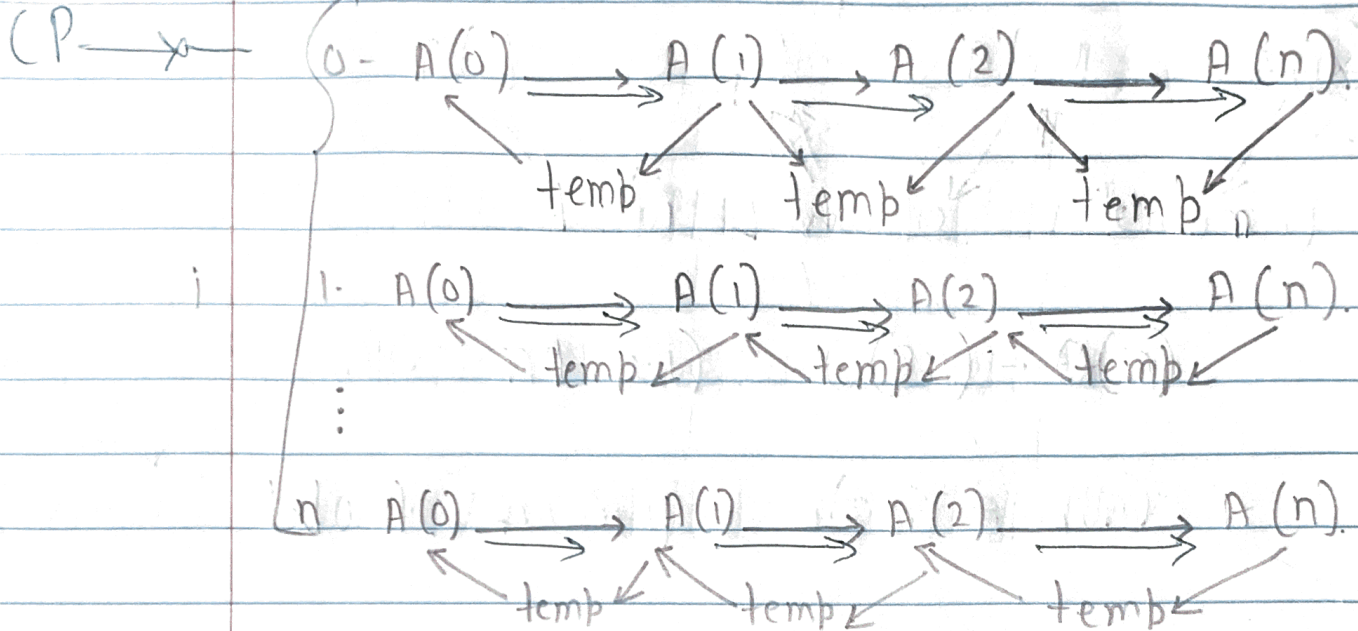 CP
0- A(0) A(1) A(2) A(n).
temp temp temp
i 1. A(0) A(1) A(2) A(n).
temp temp temp
n A(0) A(1) A(2) A(n).
temp temp temp